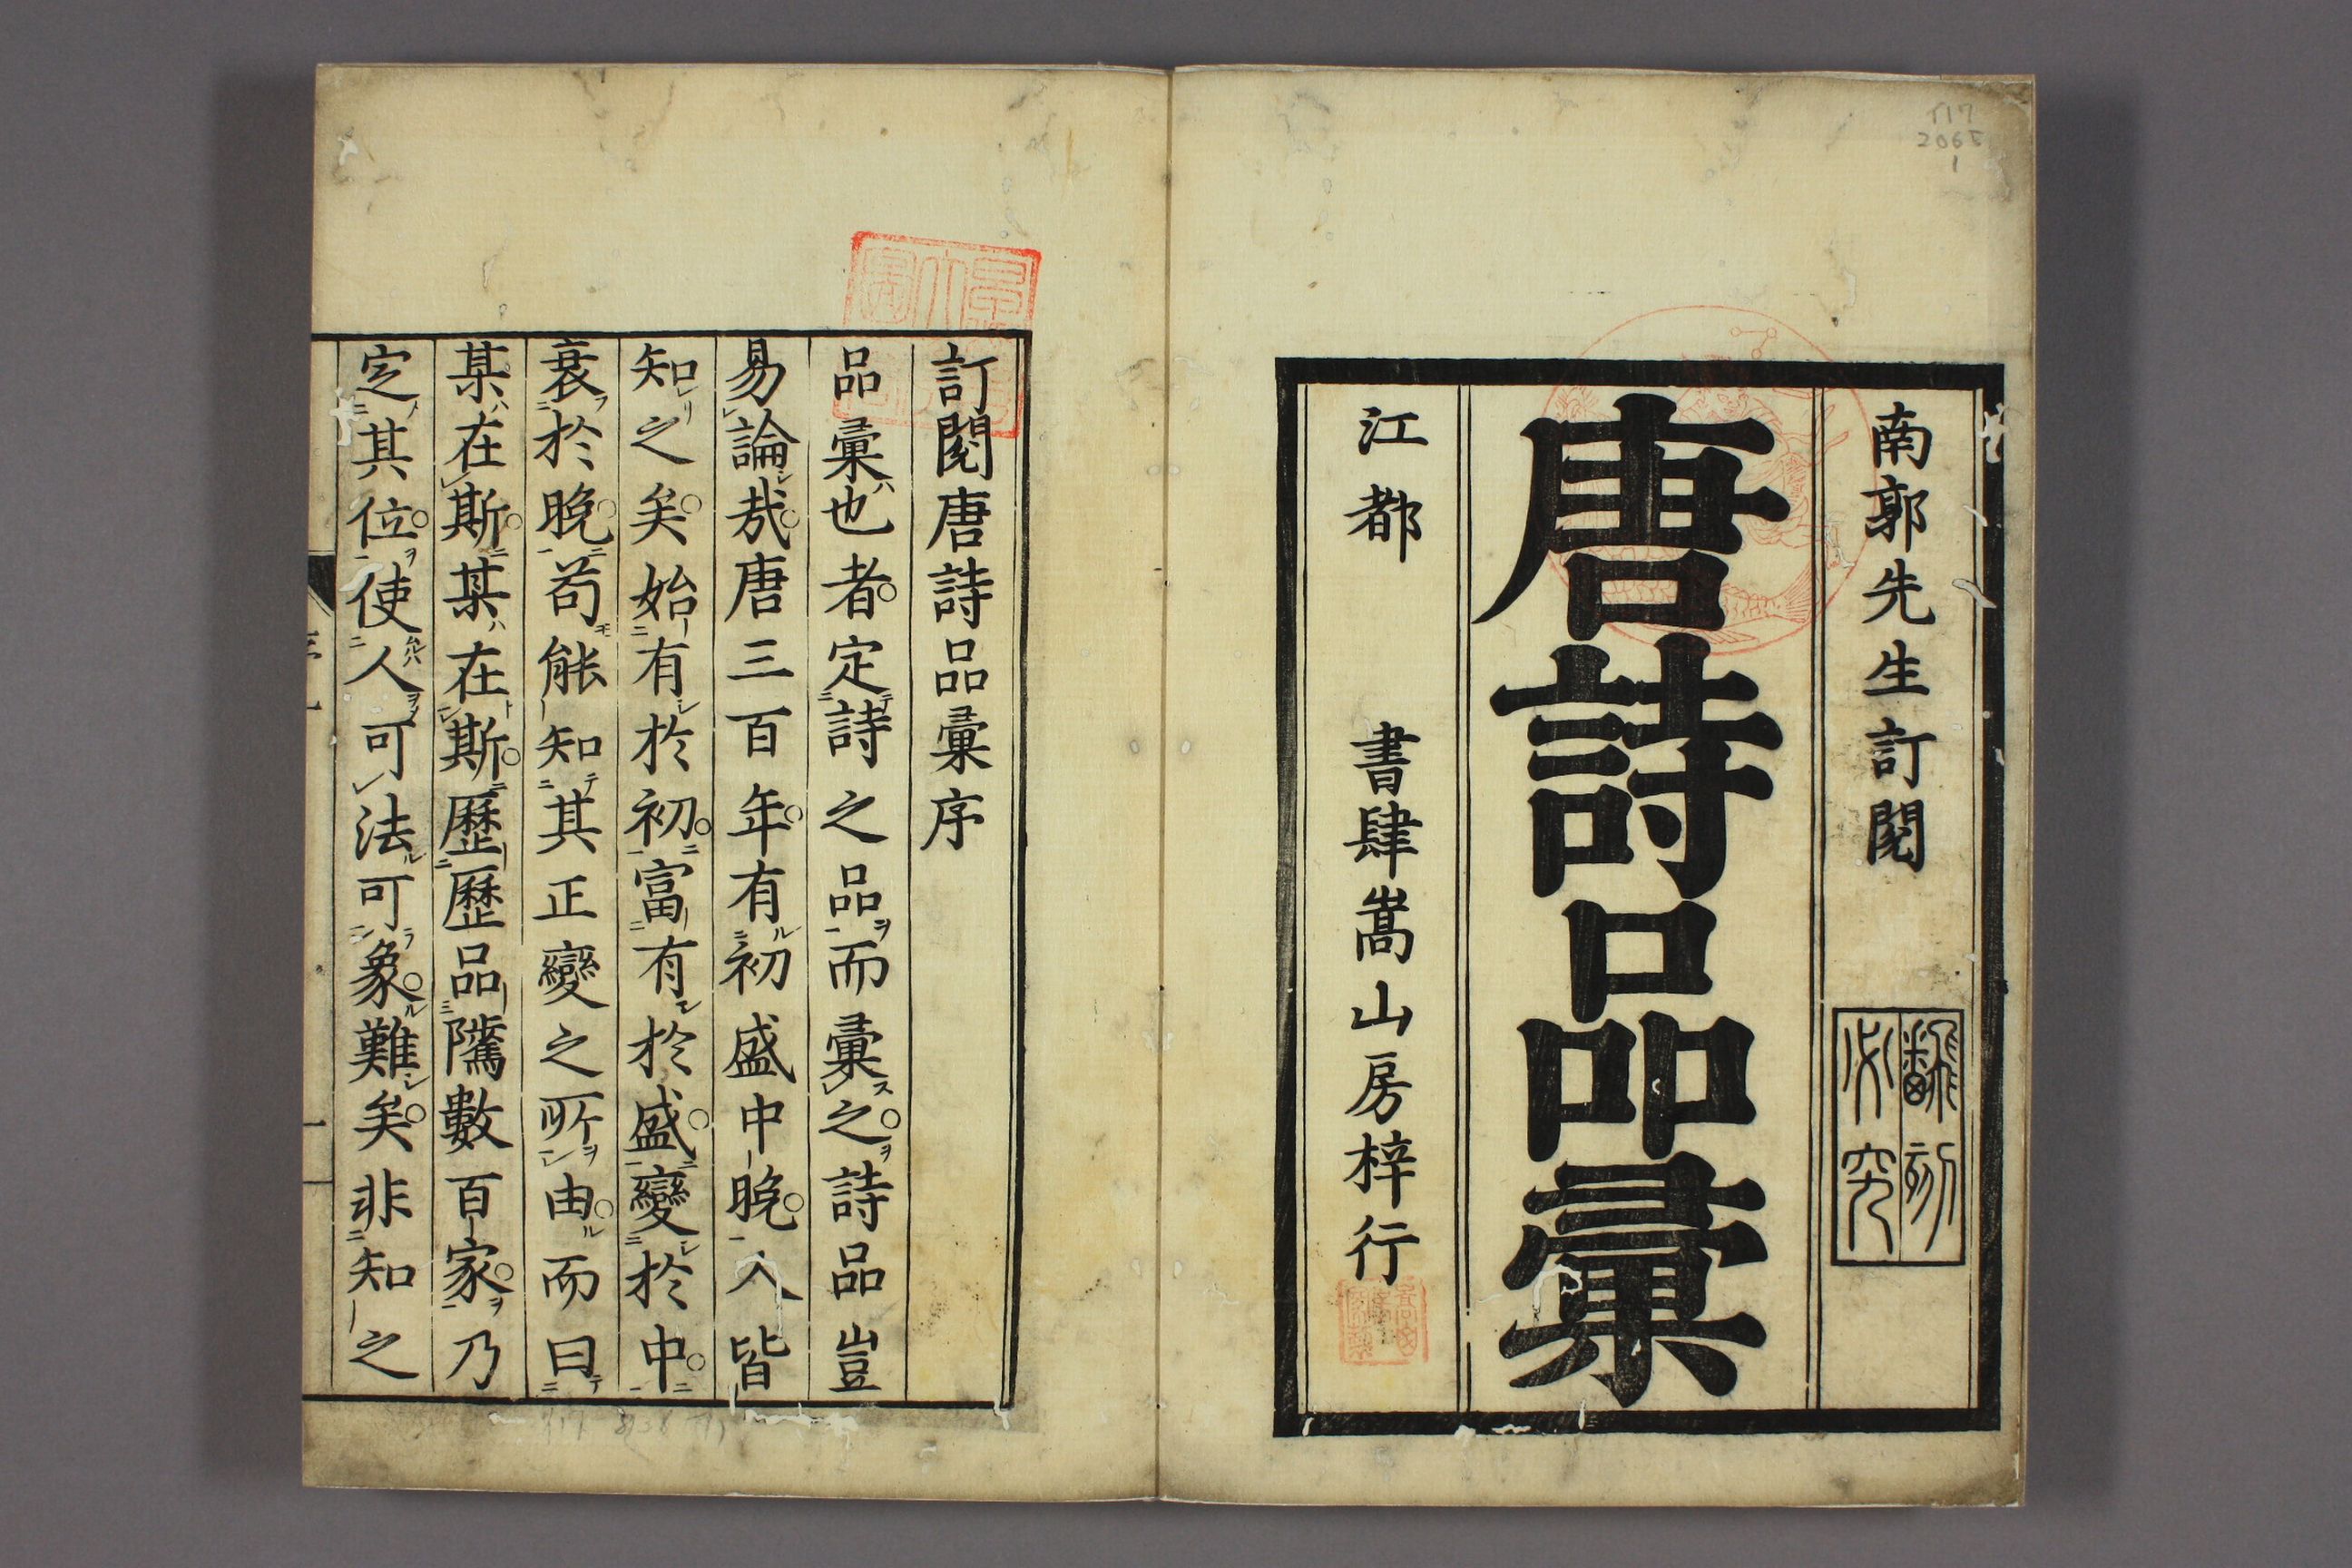 南郭先生訂閱
翻刻
必究
唐詩品彙
江都 書肆嵩山房梓行
訂閱唐詩品彙序
品彙也者定詩之品而彙之詩品豈
易論哉唐三百年有初盛中晚人皆
知之矣始有於初富有於盛變於中
衰於晚苟能知其正變之所由而曰
某在斯某在斯歷歷品隲數百家乃
定其位使人可法可象難矣非知之